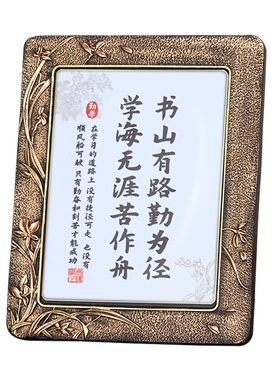 书山有路勤为径
学海无涯苦作舟
勤学
在学习的道路上 没有捷径可走 也没有
顺风船可驶 只有勤奋和刻苦才能成功